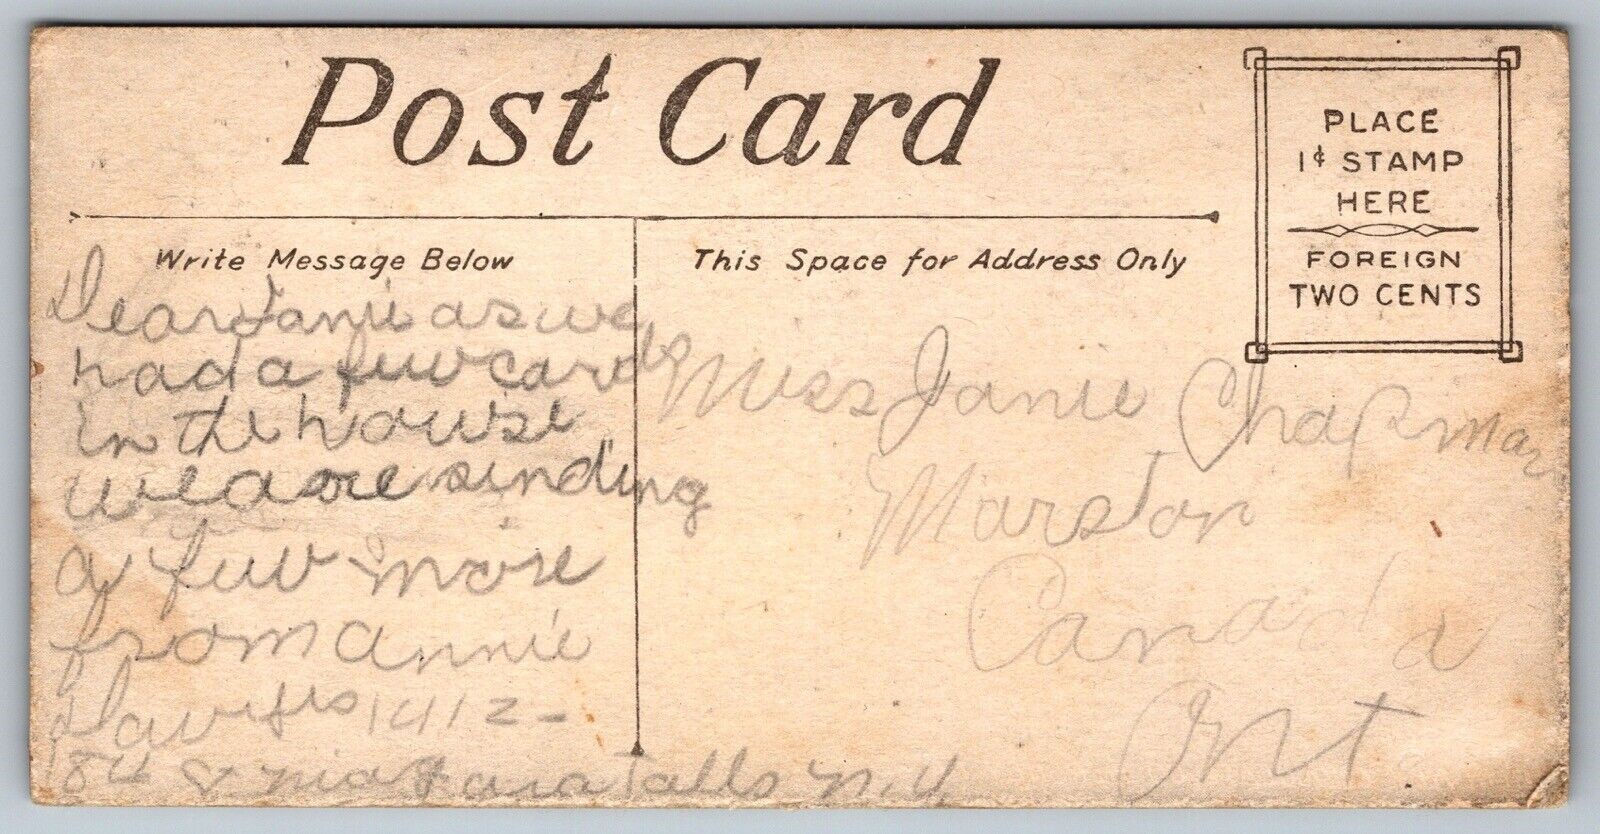 Post Card
PLACE
1¢ STAMP
HERE
FOREIGN
TWO CENTS
Write Message Below
Dear Janie as we
had a few cards
in the house
we are sinding
a few more
from Annie
1412-
18th St Niagara Falls N.Y
This Space for Address Only
Miss Janie Chapman
Marston
Canada
Ont.